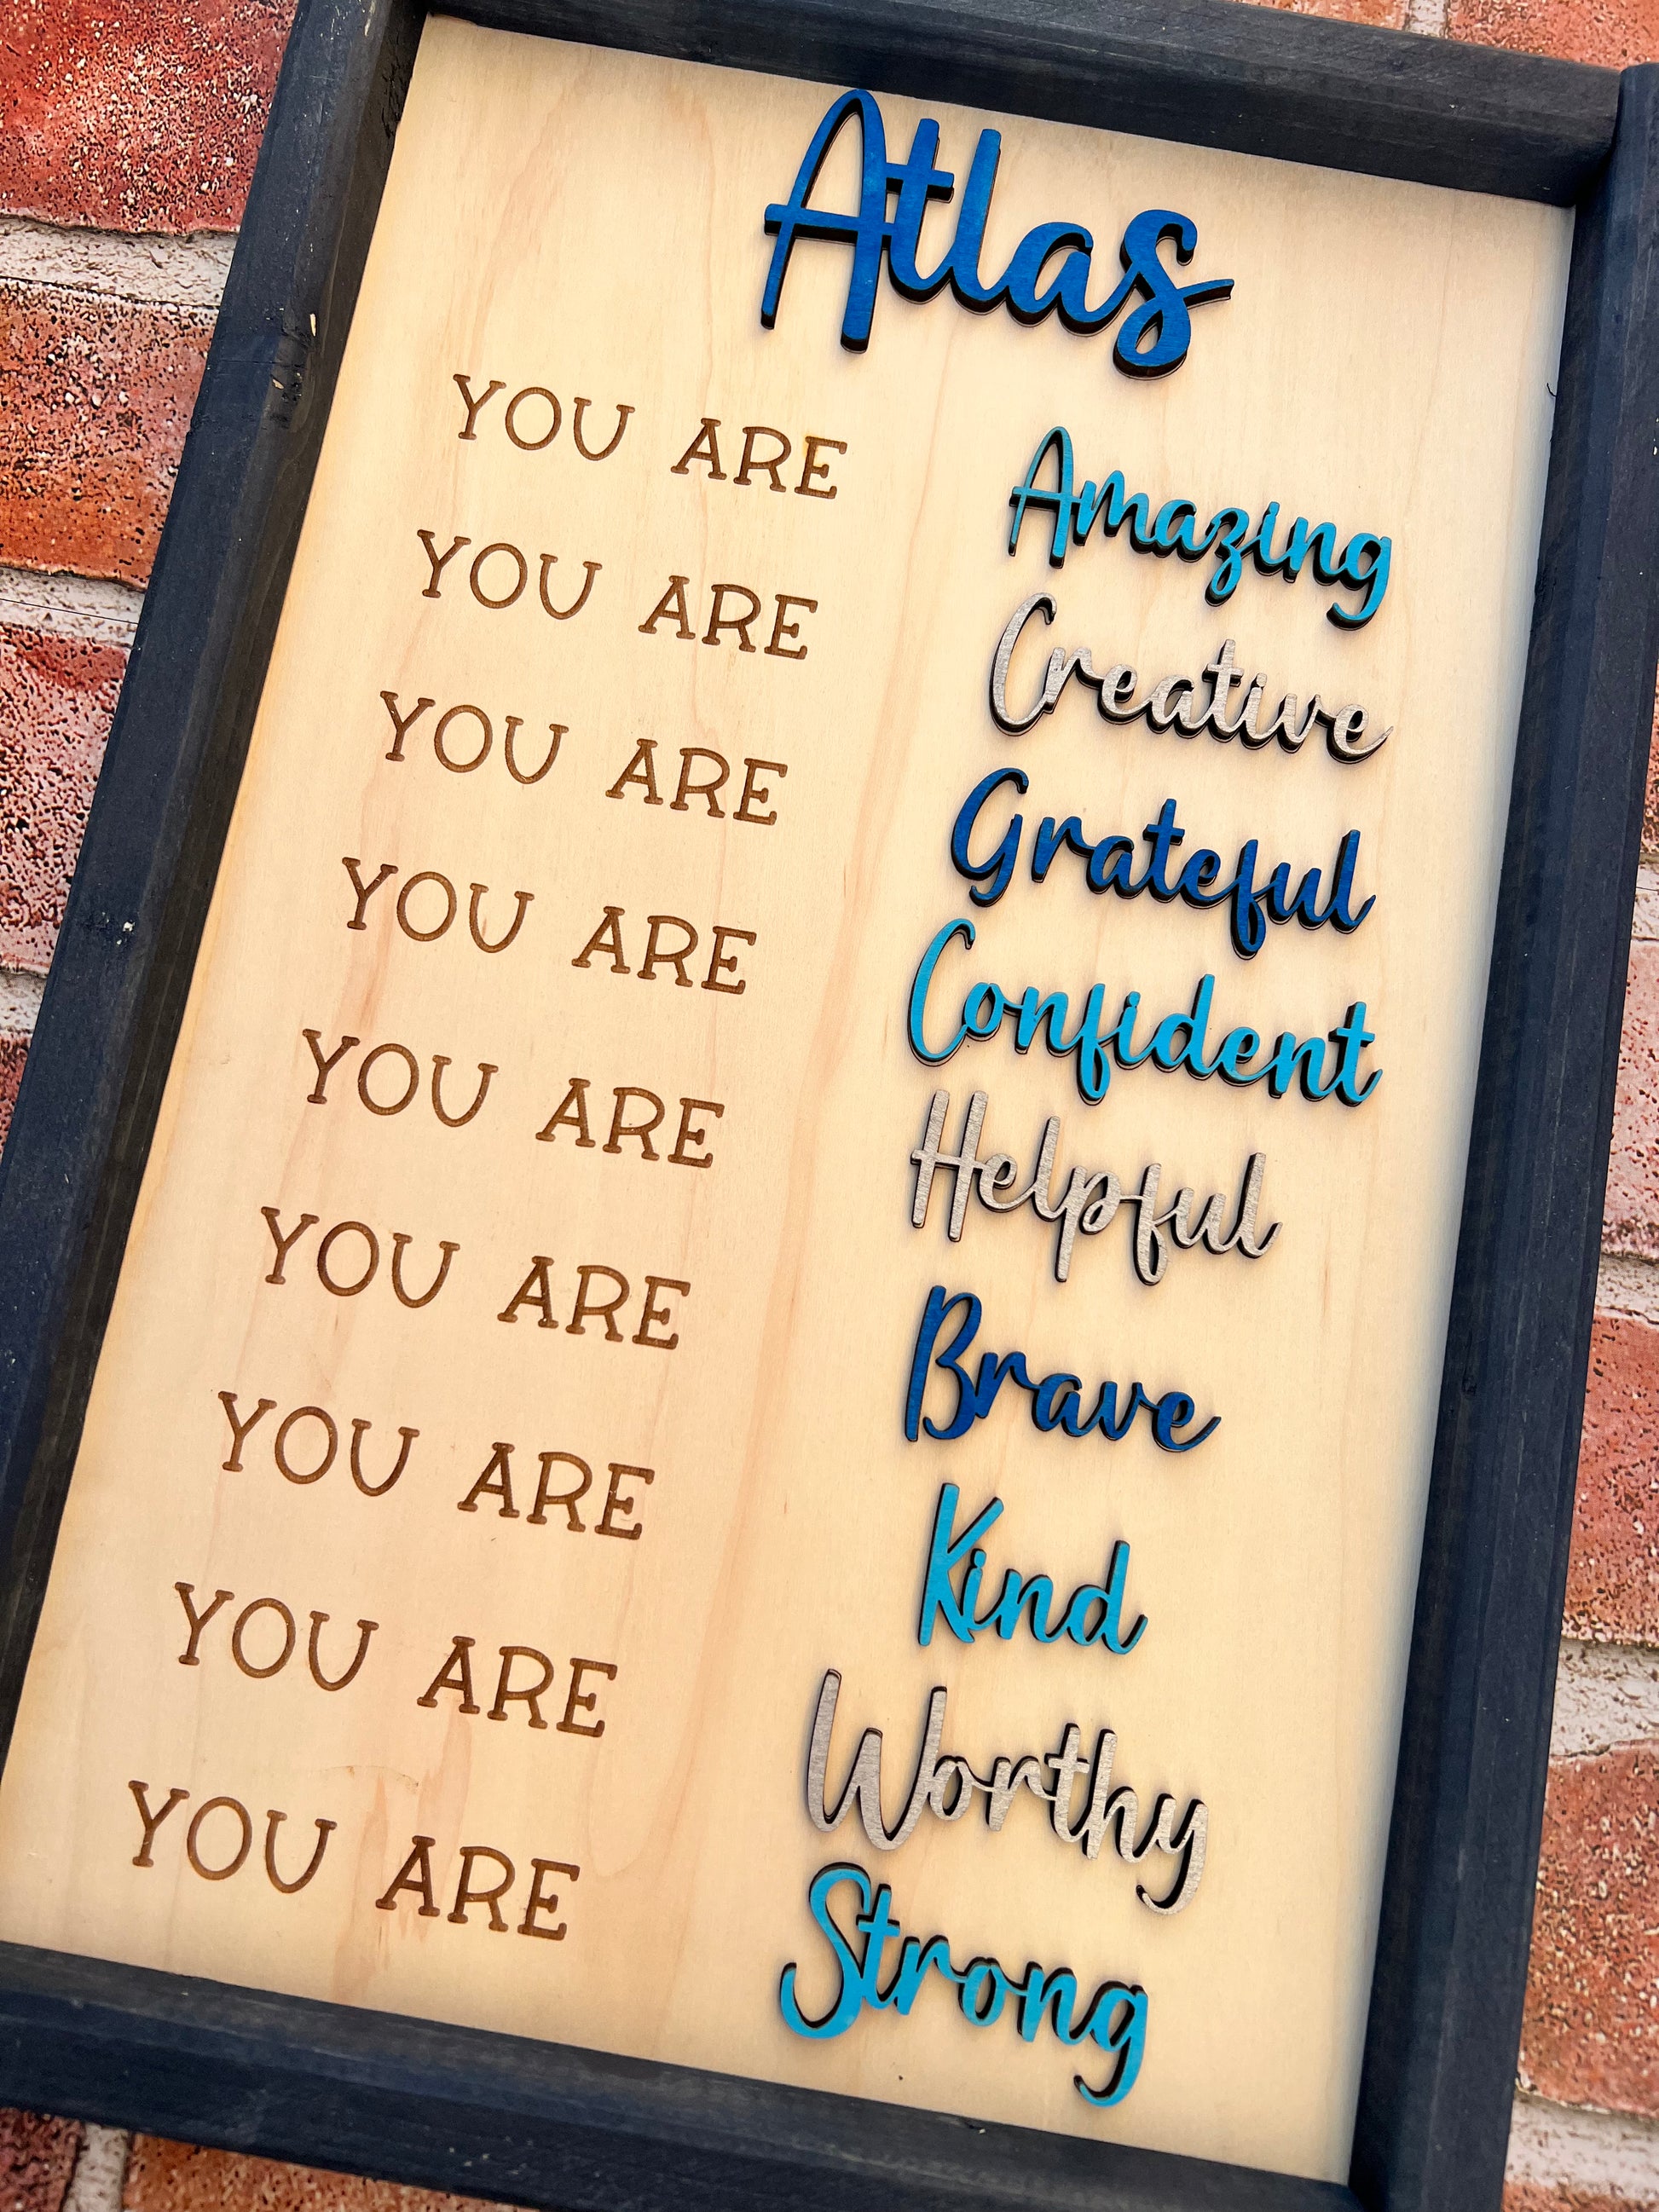 Atlas
YOU ARE Amazing
YOU ARE Creative
YOU ARE Grateful
YOU ARE Confident
YOU ARE Helpful
YOU ARE Brave
YOU ARE Kind
YOU ARE Worthy
YOU ARE Strong